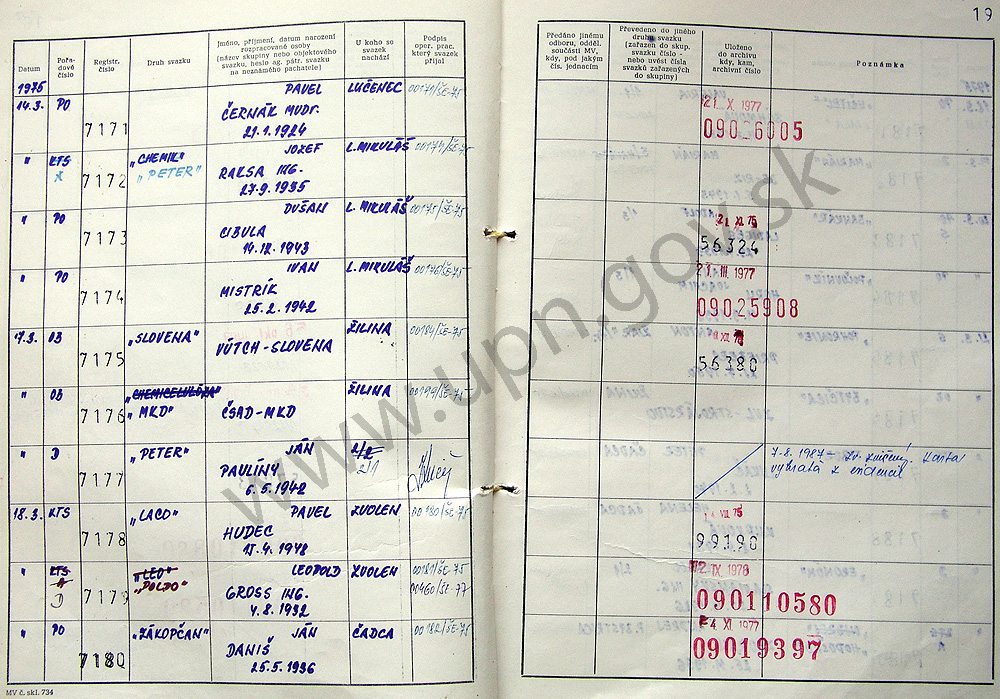 19
Datum
Pořadové číslo
Registr. číslo
Druh svazku
Jméno, příjmení, datum narození rozpracované osoby (název skupiny nebo objektového svazku, heslo ag. pátr. svazku na neznámého pachatele)
U koho se svazek nachází
Podpis oper. prac. který svazek přijal
Předáno jinému odboru, odděl. součásti MV, kdy, pod jakým čís. jednacím
Převedeno do jiného druhu svazku (zařazen do skup. svazku číslo - nebo uvést čísla svazků zařazených do skupiny)
Uloženo do archivu kdy, kam, archivní číslo
Poznámka
1975
14.3. PO 7171 PAVEL LUČENEC 00171/ŠE-75 21. X. 1977
ČERNÁK MUDr. 09026005
21.1.1924
" KTS 7172 „CHEMIK" JOZEF L. MIKULÁŠ 00174/ŠE-75
A „PETER" RAKSA ING.
27.9.1935
" PO 7173 DUŠAN L. MIKULÁŠ 00175/ŠE-75 21. XI. 75
CIBULA 56324
14.12.1943
" PO 7174 IVAN L. MIKULÁŠ 00176/ŠE-75 21. III. 1977
MISTRÍK 09025908
25.2.1942
17.3. OB 7175 „SLOVENA" ŽILINA 00184/ŠE-75
VÚTCH-SLOVENA 56380
" OB 7176 „CHEMICELULÓZA" ŽILINA 00199/ŠE-75
„MKD" ČSAD-MKD
" D 7177 „PETER" JÁN 2/2 7.8.1987 - zv. zničený. Karta
PAULÍNY 2/1 vybratá z evidencií
6.5.1942
18.3. KTS 7178 „LACO" PAVEL ZVOLEN 00180/ŠE-75
HUDEC 99190
15.4.1948
" KTS 7179 „LEO" LEOPOLD ZVOLEN 00181/ŠE-75 12. IX. 1978
A „POLDO" GROSS ING. 00460/ŠE-77 090110580
D 4.8.1932
" PO 7180 „ZÁKOPČAN" JÁN ČADCA 00182/ŠE-75 24. XI. 1977
DANIŠ 09019397
25.5.1936
MV č. skl. 734
www.upn.gov.sk